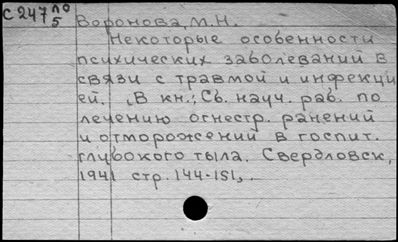 С 247 по
5
Воронова, М.Н.
Некоторые особенности
психических заболеваний в
связи с травмой и инфекци
ей. В кн.: Сб. науч. раб. по
лечению огнестр. ранений
и отморожений в госпит.
глубокого тыла. Свердловск,
1941 стр. 144-151,.